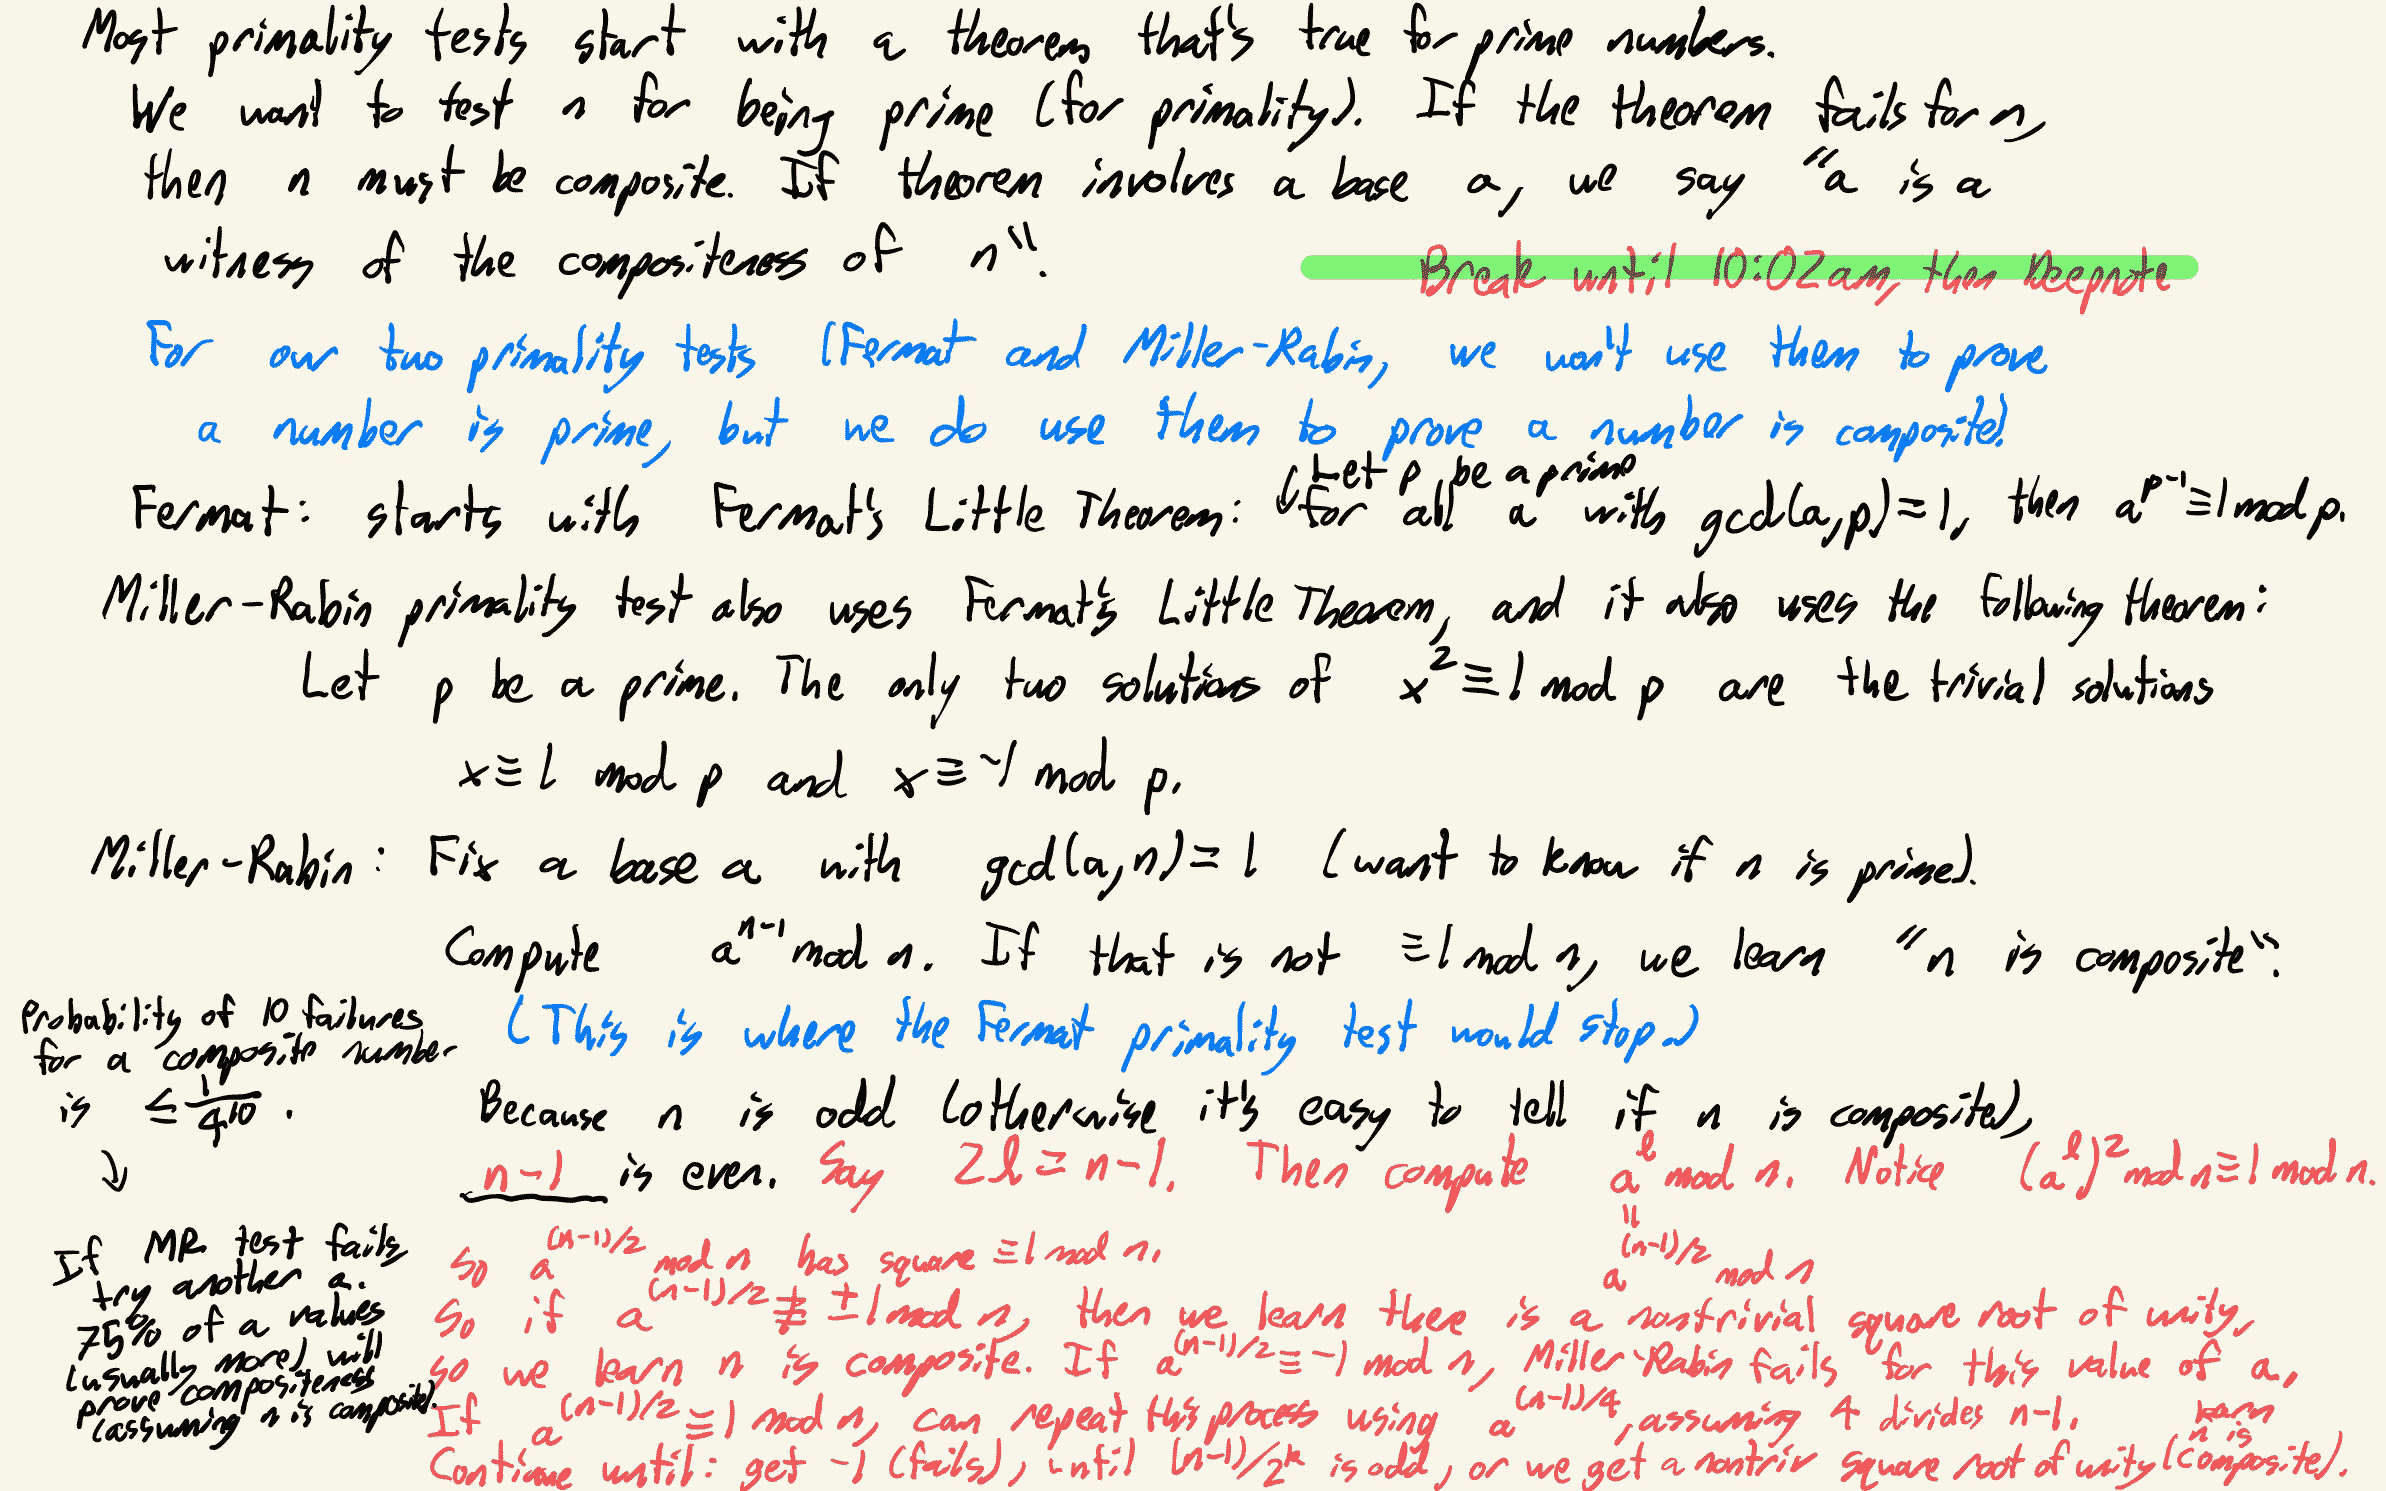 Most primality tests start with a theorem that's true for prime numbers.
We want to test n for being prime (for primality). If the theorem fails for n,
then n must be composite. If theorem involves a base a, we say "a is a
witness of the compositeness of n".
Break until 10:02am, then Deepnote
For our two primality tests (Fermat and Miller-Rabin, we won't use them to prove
a number is prime, but we do use them to prove a number is composite!
Let p be a prime
Fermat: starts with Fermat's Little Theorem: for all a with gcd(a,p)=1, then a^{p-1}≡1 mod p.
Miller-Rabin primality test also uses Fermat's Little Theorem, and it also uses the following theorem:
Let p be a prime. The only two solutions of x^2≡1 mod p are the trivial solutions
x≡1 mod p and x≡-1 mod p.
Miller-Rabin: Fix a base a with gcd(a,n)=1 (want to know if n is prime).
Compute a^{n-1} mod n. If that is not ≡1 mod n, we learn "n is composite".
(This is where the Fermat primality test would stop.)
Because n is odd (otherwise it's easy to tell if n is composite),
n-1 is even. Say 2l=n-1. Then compute a^l mod n. Notice (a^l)^2 mod n≡1 mod n.
"
a^{(n-1)/2} mod n
So a^{(n-1)/2} mod n has square ≡1 mod n.
So if a^{(n-1)/2} ≢ ±1 mod n, then we learn there is a nontrivial square root of unity,
so we learn n is composite. If a^{(n-1)/2}≡-1 mod n, Miller-Rabin fails for this value of a.
If a^{(n-1)/2}≡1 mod n, can repeat this process using a^{(n-1)/4}, assuming 4 divides n-1.
Continue until: get -1 (fails), until (n-1)/2^k is odd, or we get a nontriv square root of unity (learn n is composite).
Probability of 10 failures
for a composite number
is ≤ 1/4^{10}.
↓
If MR test fails
try another a.
75% of a values
(usually more) will
prove compositeness
(assuming n is composite).